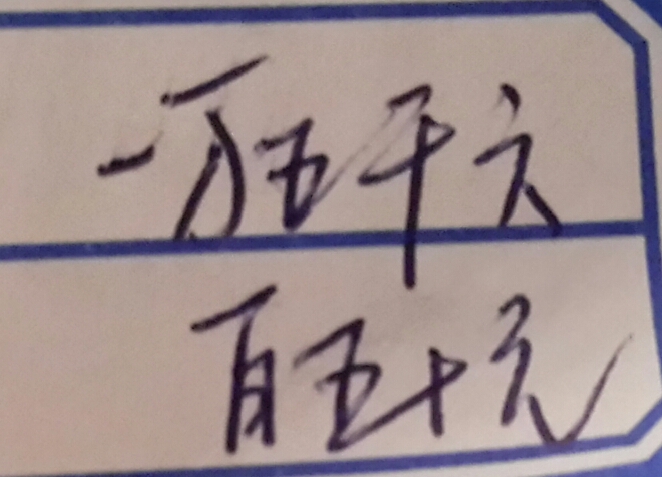 一万五千六
百五十元